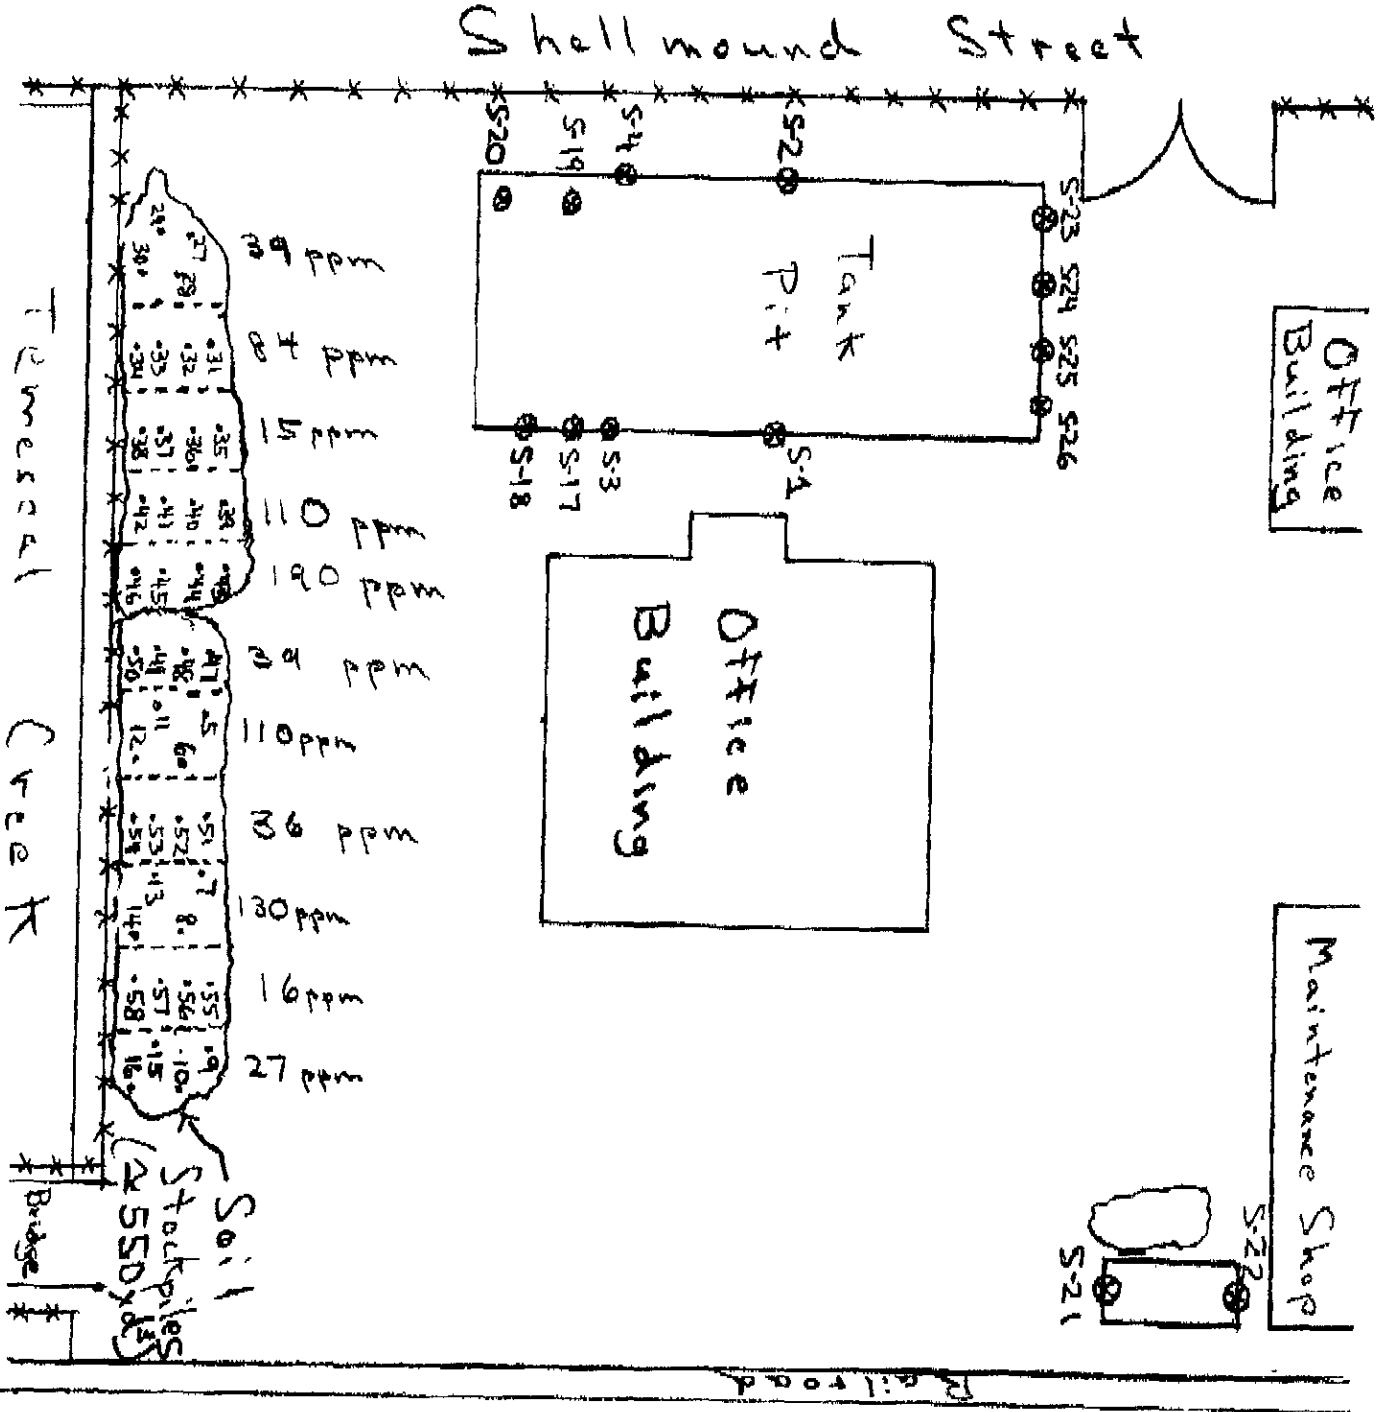 Shellmound Street
S-20
S-19
S-4
S-2
S-23
S24
S25
S26
Tank
Pit
S-18
S-17
S-3
S-1
Office
Building
Office
Building
Maintenance Shop
S-22
S-21
Temescal Creek
29
27
28
30
31
32
33
34
84 ppm
35
36
37
38
15 ppm
39
40
41
42
110 ppm
43
44
45
46
190 ppm
47
48
49
50
39 ppm
5
6
11
12
110 ppm
51
52
53
54
36 ppm
7
8
13
14
130 ppm
55
56
57
58
16 ppm
9
10
15
16
27 ppm
Soil
Stockpiles
Bridge
Railroad